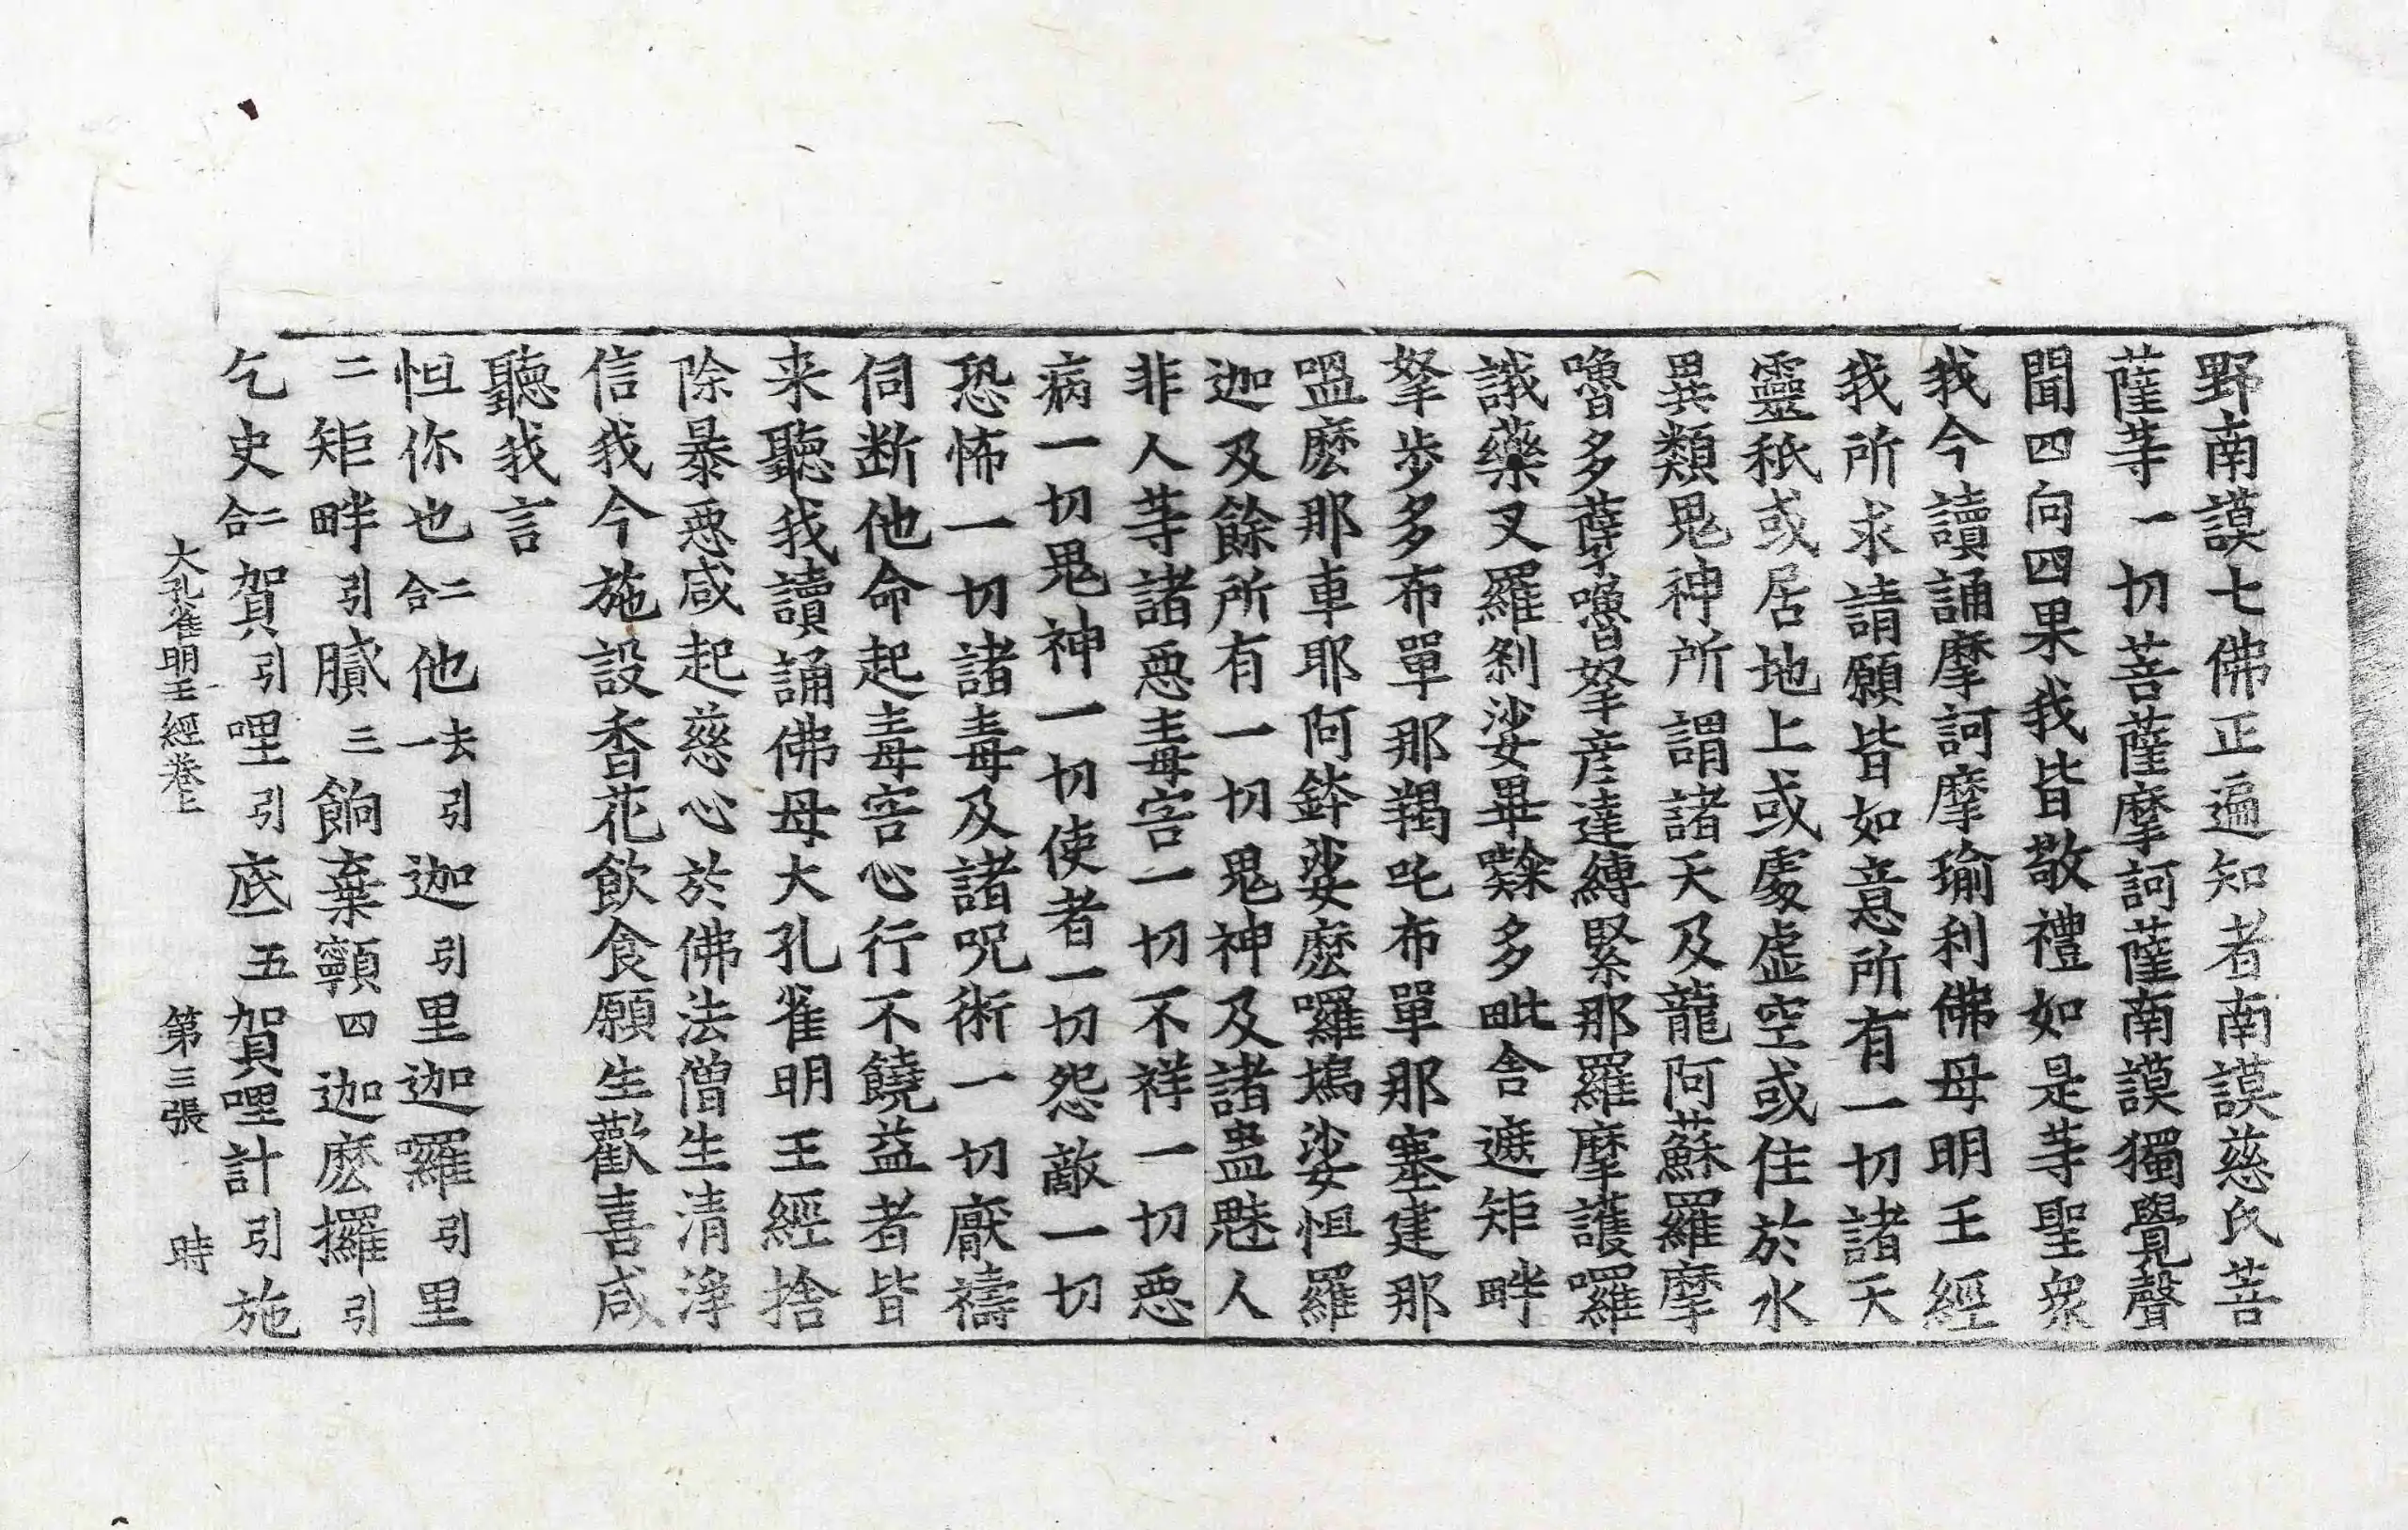 野南謨七佛正遍知者南謨慈氏菩
薩等一切菩薩摩訶薩南謨獨覺聲
聞四向四果我皆敬禮如是等聖衆
我今讀誦摩訶摩瑜利佛母明王經
我所求請願皆如意所有一切諸天
靈祇或居地上或處虛空或住於水
異類鬼神所謂諸天及龍阿蘇羅摩
嚕多蘖嚕拏彦達縛緊那羅摩護囉
誐藥叉羅剎娑畢㘑多毗舍遮矩畔
拏步多布單那羯吒布單那塞建那
嗢麽那車耶阿鉢娑麽囉塢娑怛羅
迦及餘所有一切鬼神及諸蠱魅人
非人等諸惡毒害一切不祥一切惡
病一切鬼神一切使者一切怨敵一切
恐怖一切諸毒及諸呪術一切厭禱
伺断他命起毒害心行不饒益者皆
来聽我讀誦佛母大孔雀明王經捨
除暴惡咸起慈心於佛法僧生清淨
信我今施設香花飲食願生歡喜咸
聽我言
怛你也二合他去引一迦引里迦囉引里
二矩畔引膩三餉棄顎四迦麽攞引
乞史二合賀引哩引底五賀哩計引施
大孔雀明王經卷上 第三張 時